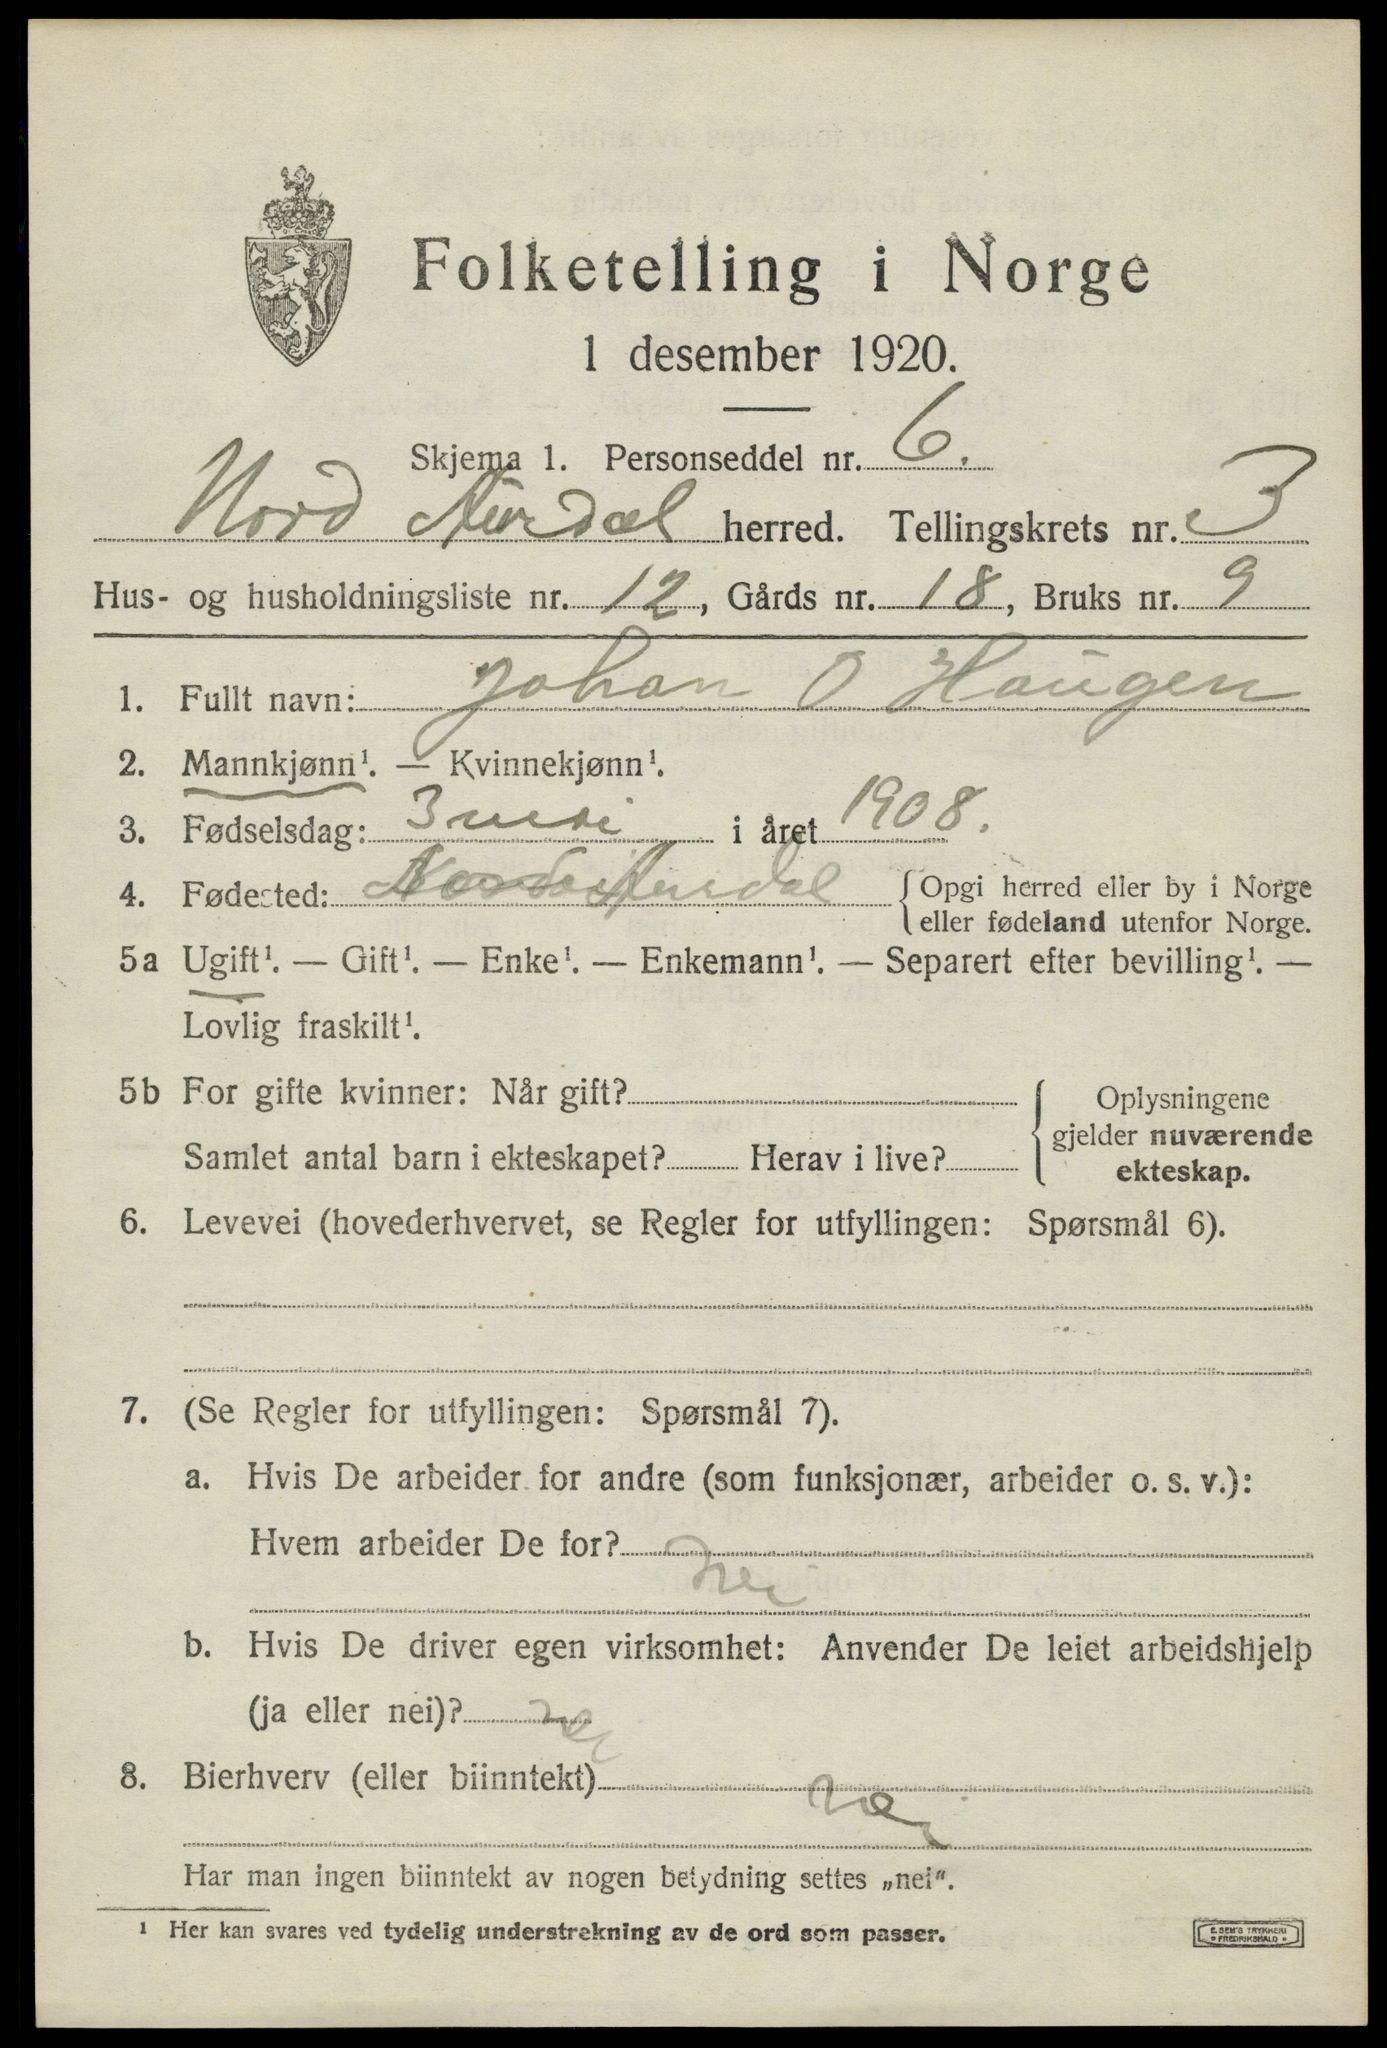 Folketelling i Norge
1 desember 1920.
Skjema 1. Personseddel nr. 6.
Nord Aurdal herred. Tellingskrets nr. 3
Hus- og husholdningsliste nr. 12, Gårds nr. 18, Bruks nr. 9
1. Fullt navn: Johan O Haugen
2. Mannkjønn¹. — Kvinnekjønn¹.
3. Fødselsdag: 3 i året 1908.
4. Fødested: Nord Aurdal {Opgi herred eller by i Norge
eller fødeland utenfor Norge.
5a Ugift¹. — Gift¹. — Enke¹. — Enkemann¹. — Separert efter bevilling¹. —
Lovlig fraskilt¹.
5b For gifte kvinner: Når gift? Oplysningene
gjelder nuværende
Samlet antal barn i ekteskapet? Herav i live? ekteskap.
6. Levevei (hovederhvervet, se Regler for utfyllingen: Spørsmål 6).
7. (Se Regler for utfyllingen: Spørsmål 7).
a. Hvis De arbeider for andre (som funksjonær, arbeider o. s. v.):
Hvem arbeider De for? nei
b. Hvis De driver egen virksomhet: Anvender De leiet arbeidshjelp
(ja eller nei)? nei
8. Bierhverv (eller biinntekt) nei
Har man ingen biinntekt av nogen betydning settes „nei“.
¹ Her kan svares ved tydelig understrekning av de ord som passer.
E. SEM'S TRYKKERI
* FREDRIKSHALD *